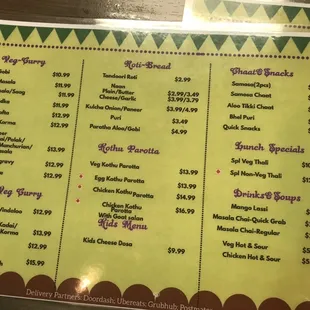 Veg-Curry
Gobi $10.99
Masala $11.99
$11.99
$12.99
Korma $12.99
$11.99
$12.99
$12.99
Veg Curry
$12.99
Kadai/
Korma $13.99
$12.99
$15.99
Roti-Bread
Tandoori Roti $2.99
Naan
Plain/Butter $2.99/3.49
Cheese/Garlic $3.99/3.79
Kulcha Onion/Paneer $3.99/4.99
Puri $3.49
Paratha Aloo/Gobi $4.99
Kothu Parotta
Veg Kothu Parotta $13.99
Egg Kothu Parotta $13.99
Chicken Kothu $14.99
Parotta
Chicken Kothu $16.99
Parotta
With Goat salan
Kids Menu
Kids Cheese Dosa $9.99
Chaat&Snacks
Samosa(2pcs)
Samosa Chaat
Aloo Tikki Chaat
Bhel Puri
Quick Snacks
Lunch Specials
Spl Veg Thali
Spl Non-Veg Thali
Drinks&Soups
Mango Lassi
Masala Chai-Quick Grab
Masala Chai-Regular
Veg Hot & Sour
Chicken Hot & Sour
Delivery Partners: Doordash; Ubereats; Grubhub; Postmates